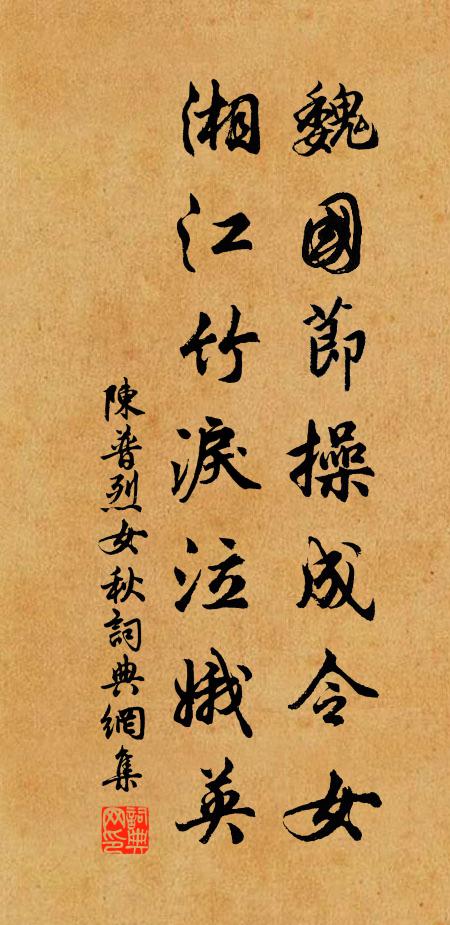 魏國節操成令女
湘江竹淚泣娥英
陳普烈女秋詞典網集
詞典网印